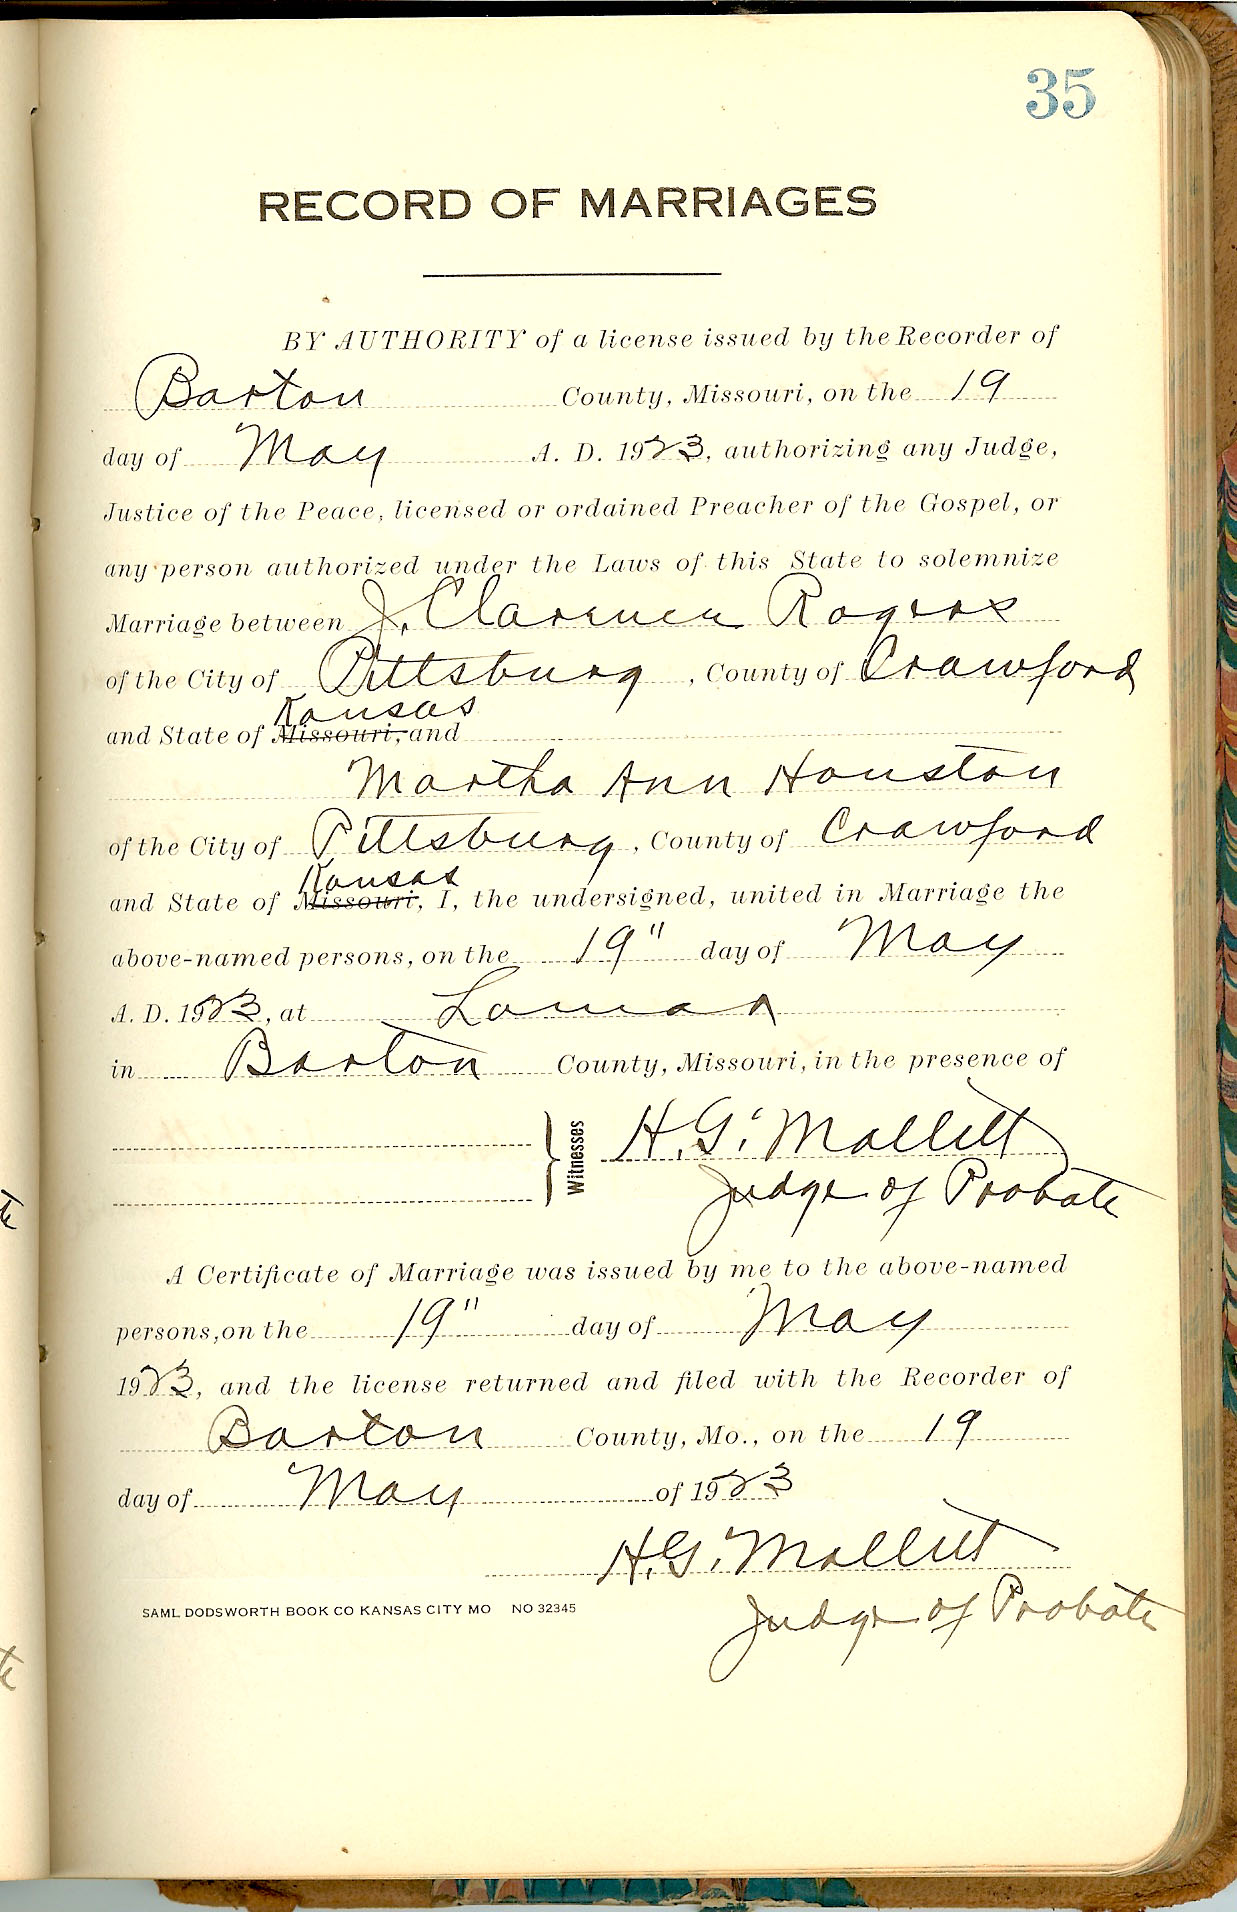 35
RECORD OF MARRIAGES
BY AUTHORITY of a license issued by the Recorder of
Barton County, Missouri, on the 19
day of May A. D. 1923, authorizing any Judge,
Justice of the Peace, licensed or ordained Preacher of the Gospel, or
any person authorized under the Laws of this State to solemnize
Marriage between J. Clarence Rogers
of the City of Pittsburg, County of Crawford
Kansas
and State of Missouri, and
Martha Ann Houston
of the City of Pittsburg, County of Crawford
Kansas
and State of Missouri, I, the undersigned, united in Marriage the
above-named persons, on the 19" day of May
A. D. 1923, at Lamar
in Barton County, Missouri, in the presence of
Witnesses H. G.
Judge of Probate
A Certificate of Marriage was issued by me to the above-named
persons, on the 19" day of May
1923, and the license returned and filed with the Recorder of
Barton County, Mo., on the 19
day of May of 1923
H. G.
Judge of Probate
SAML DODSWORTH BOOK CO KANSAS CITY MO NO 32345